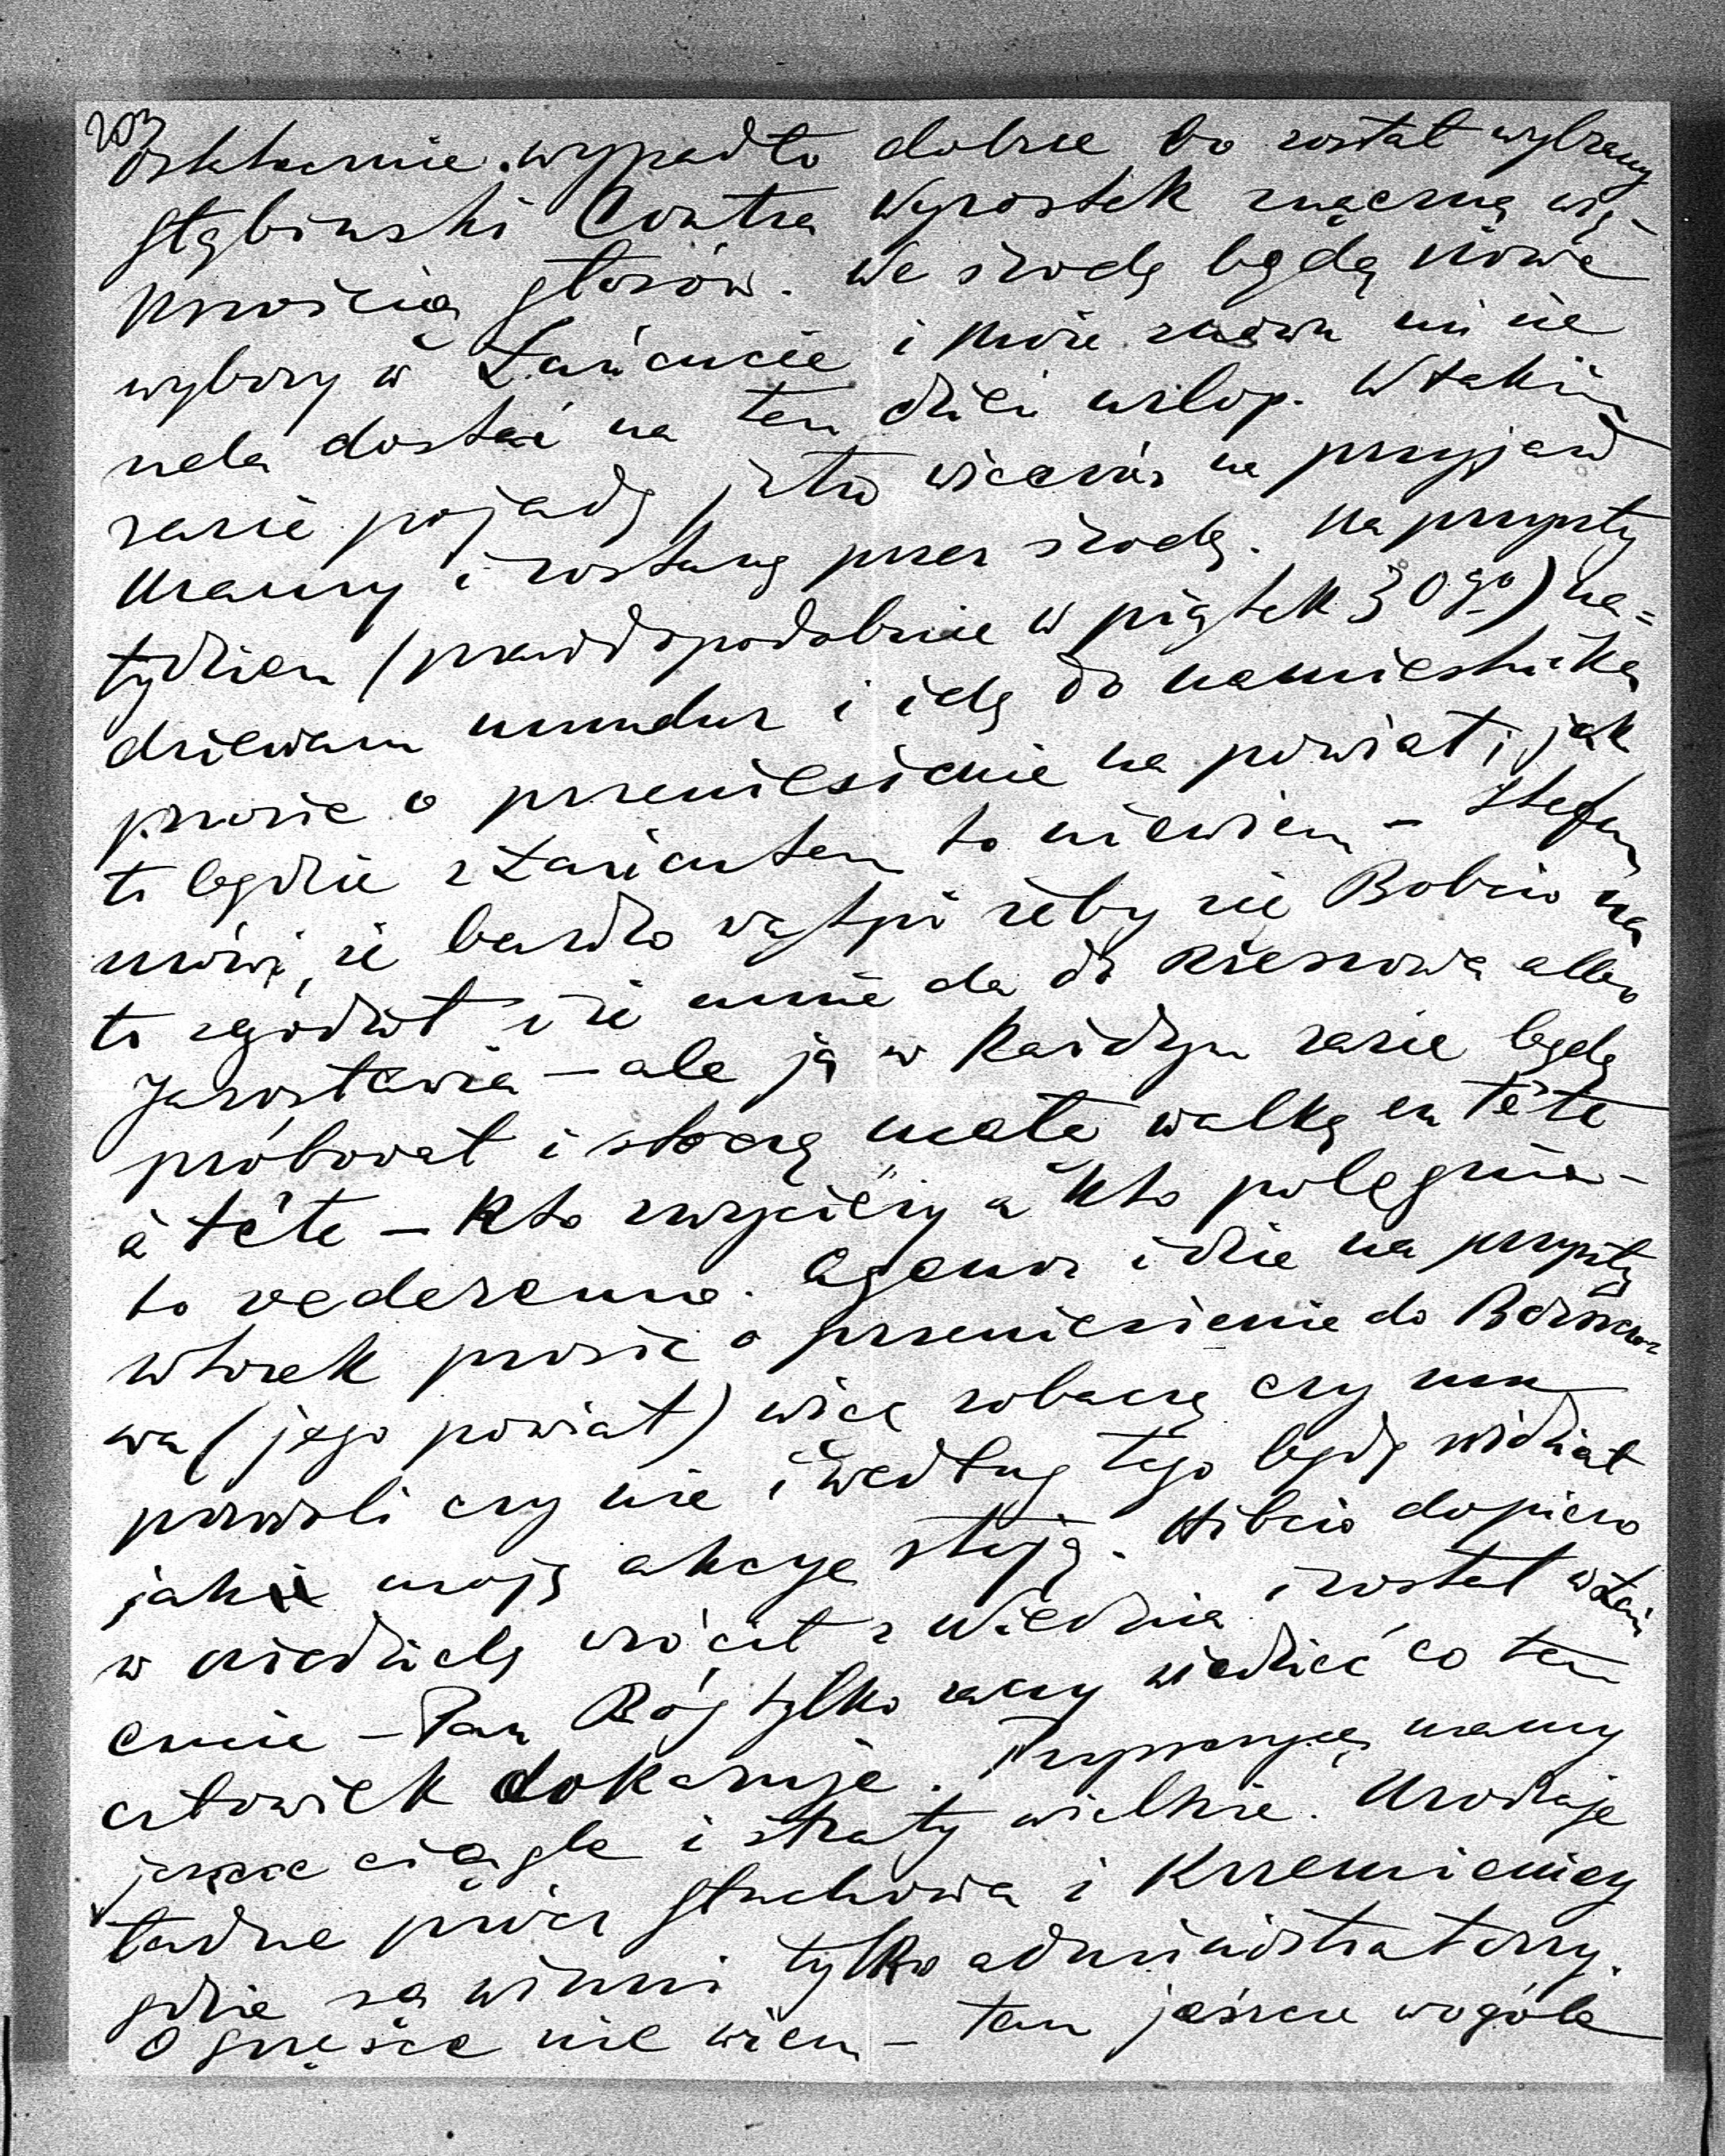 203
wypadło dobrze bo został wybrany
Głąbiński Contra Wyrostek znaczną wię-
kszością głosów. We środę będą nowe
wybory w Łańcucie i może znowu mi się
uda dostać na ten dzień urlop. W takim
razie pojadę jutro wieczór na przyjazd
Mamy i zostanę przez środę. Na przyszły
tydzień (prawdopodobnie w piątek 30go) na=
dziewam mundur i idę do namiestnika
prosić o przeniesienie na powiat, jak
to będzie z Łańcutem to niewiem – Stefan
mówi, że bardzo wątpi żeby się Bobcio na
to zgodził i że mnie da do Rzeszowa albo
Jarosławia – ale ja w każdym razie będę
próbował i stoczę małą walkę en tête
à tête – Kto zwycięży a kto polegnie –
to vederemo. Agenor idzie na przyszły
wtorek prosić o przeniesienie do Borszczo-
wa (jego powiat) więc zobaczę czy mu
pozwoli czy nie i według tego będę widział
jak moje akcye stoją. Hibcio dopiero
w niedzielę wrócił z Wiednia i został w Łań
cucie – Pan Bóg tylko raczy wiedzieć co ten
człowiek dokazuje. Propinacyę mamy
jeszcze ciągle i straty wielkie. Urodzaje
ładne prócz Głuchowa i Kraemienicy
gdzie są winni tylko administratorzy.
O Gręsce nie wiem – tam jeszcze wogóle